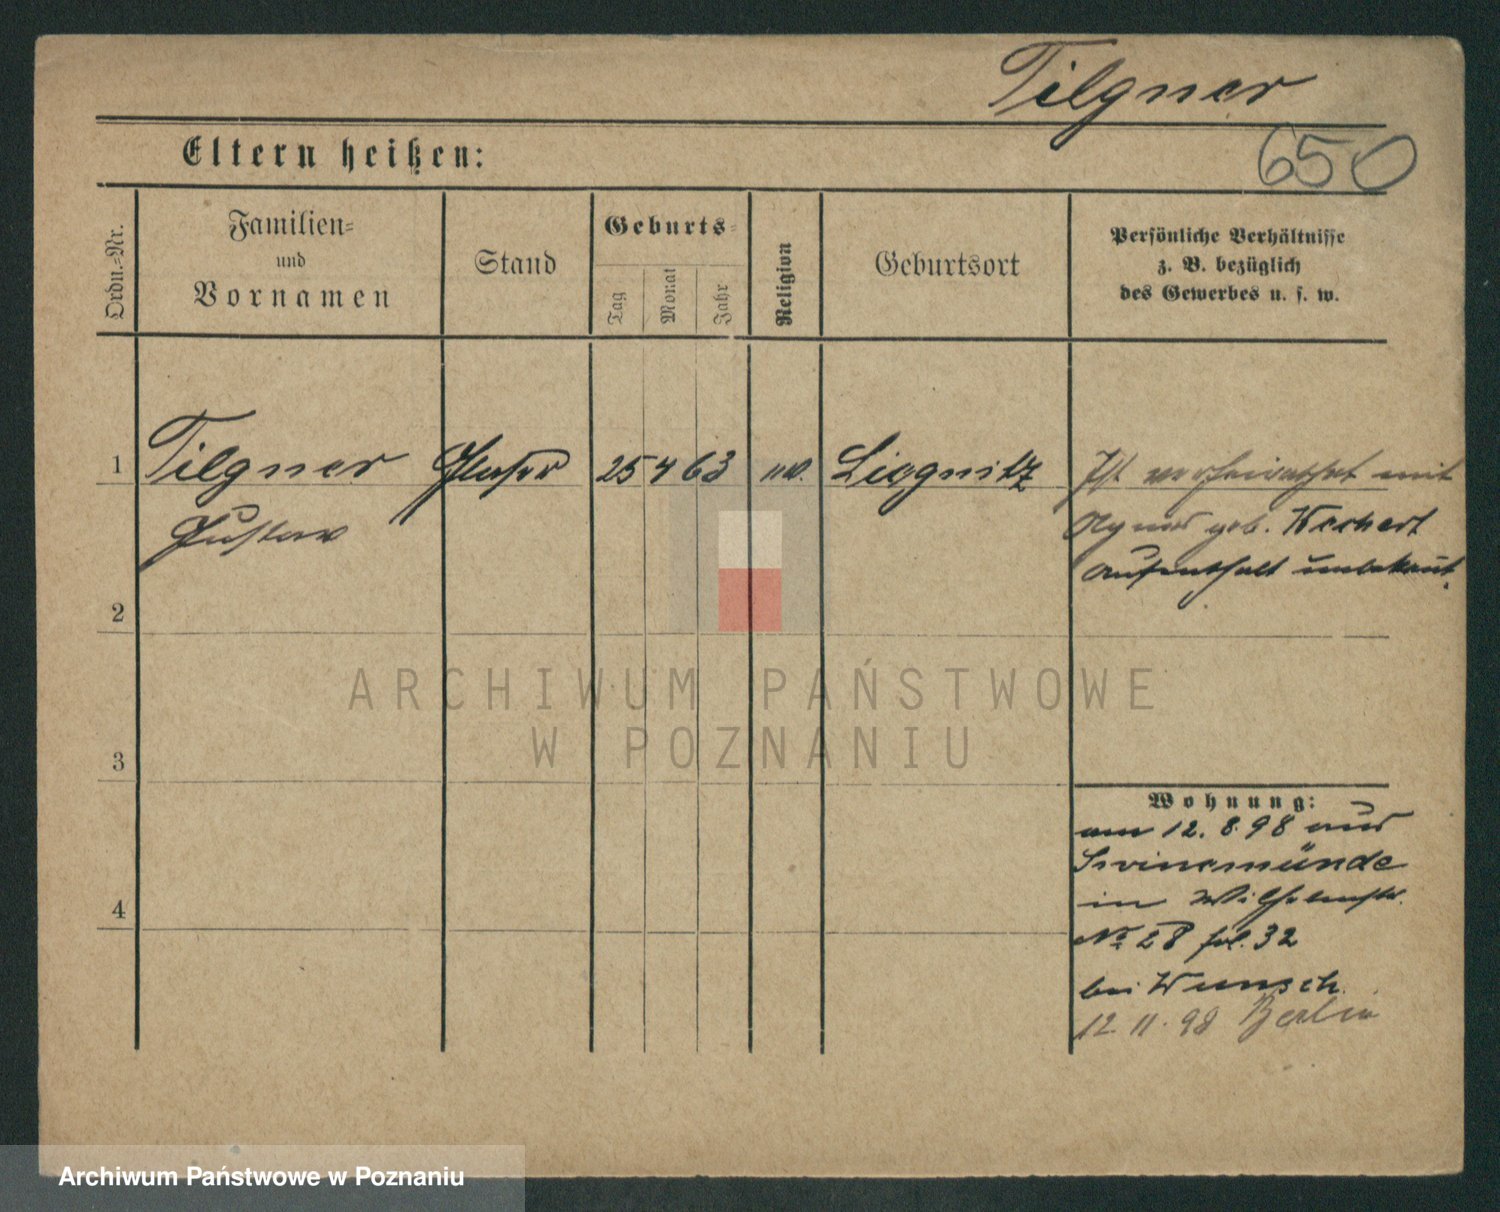 Tilgner
650
Eltern heißen:
Ordn.-Nr.
Familien-
und
Vornamen
Stand
Geburts-
Tag
Monat
Jahr
Religion
Geburtsort
Persönliche Verhältnisse
z. B. bezüglich
des Gewerbes u. s. w.
1 Tilgner Glaser 25 4 63 ev. Liegnitz Ist verheirathet mit
Gustav
geb. Wechert
Aufenthalt unbekannt.
2
ARCHIWUM PAŃSTWOWE
W POZNANIU
3
Wohnung:
am 12. 8. 98 aus
Swinemünde
in Wilhelmstr.
No 28 fol. 32
bei Wunsch.
12. 11. 98 Berlin
4
Archiwum Państwowe w Poznaniu